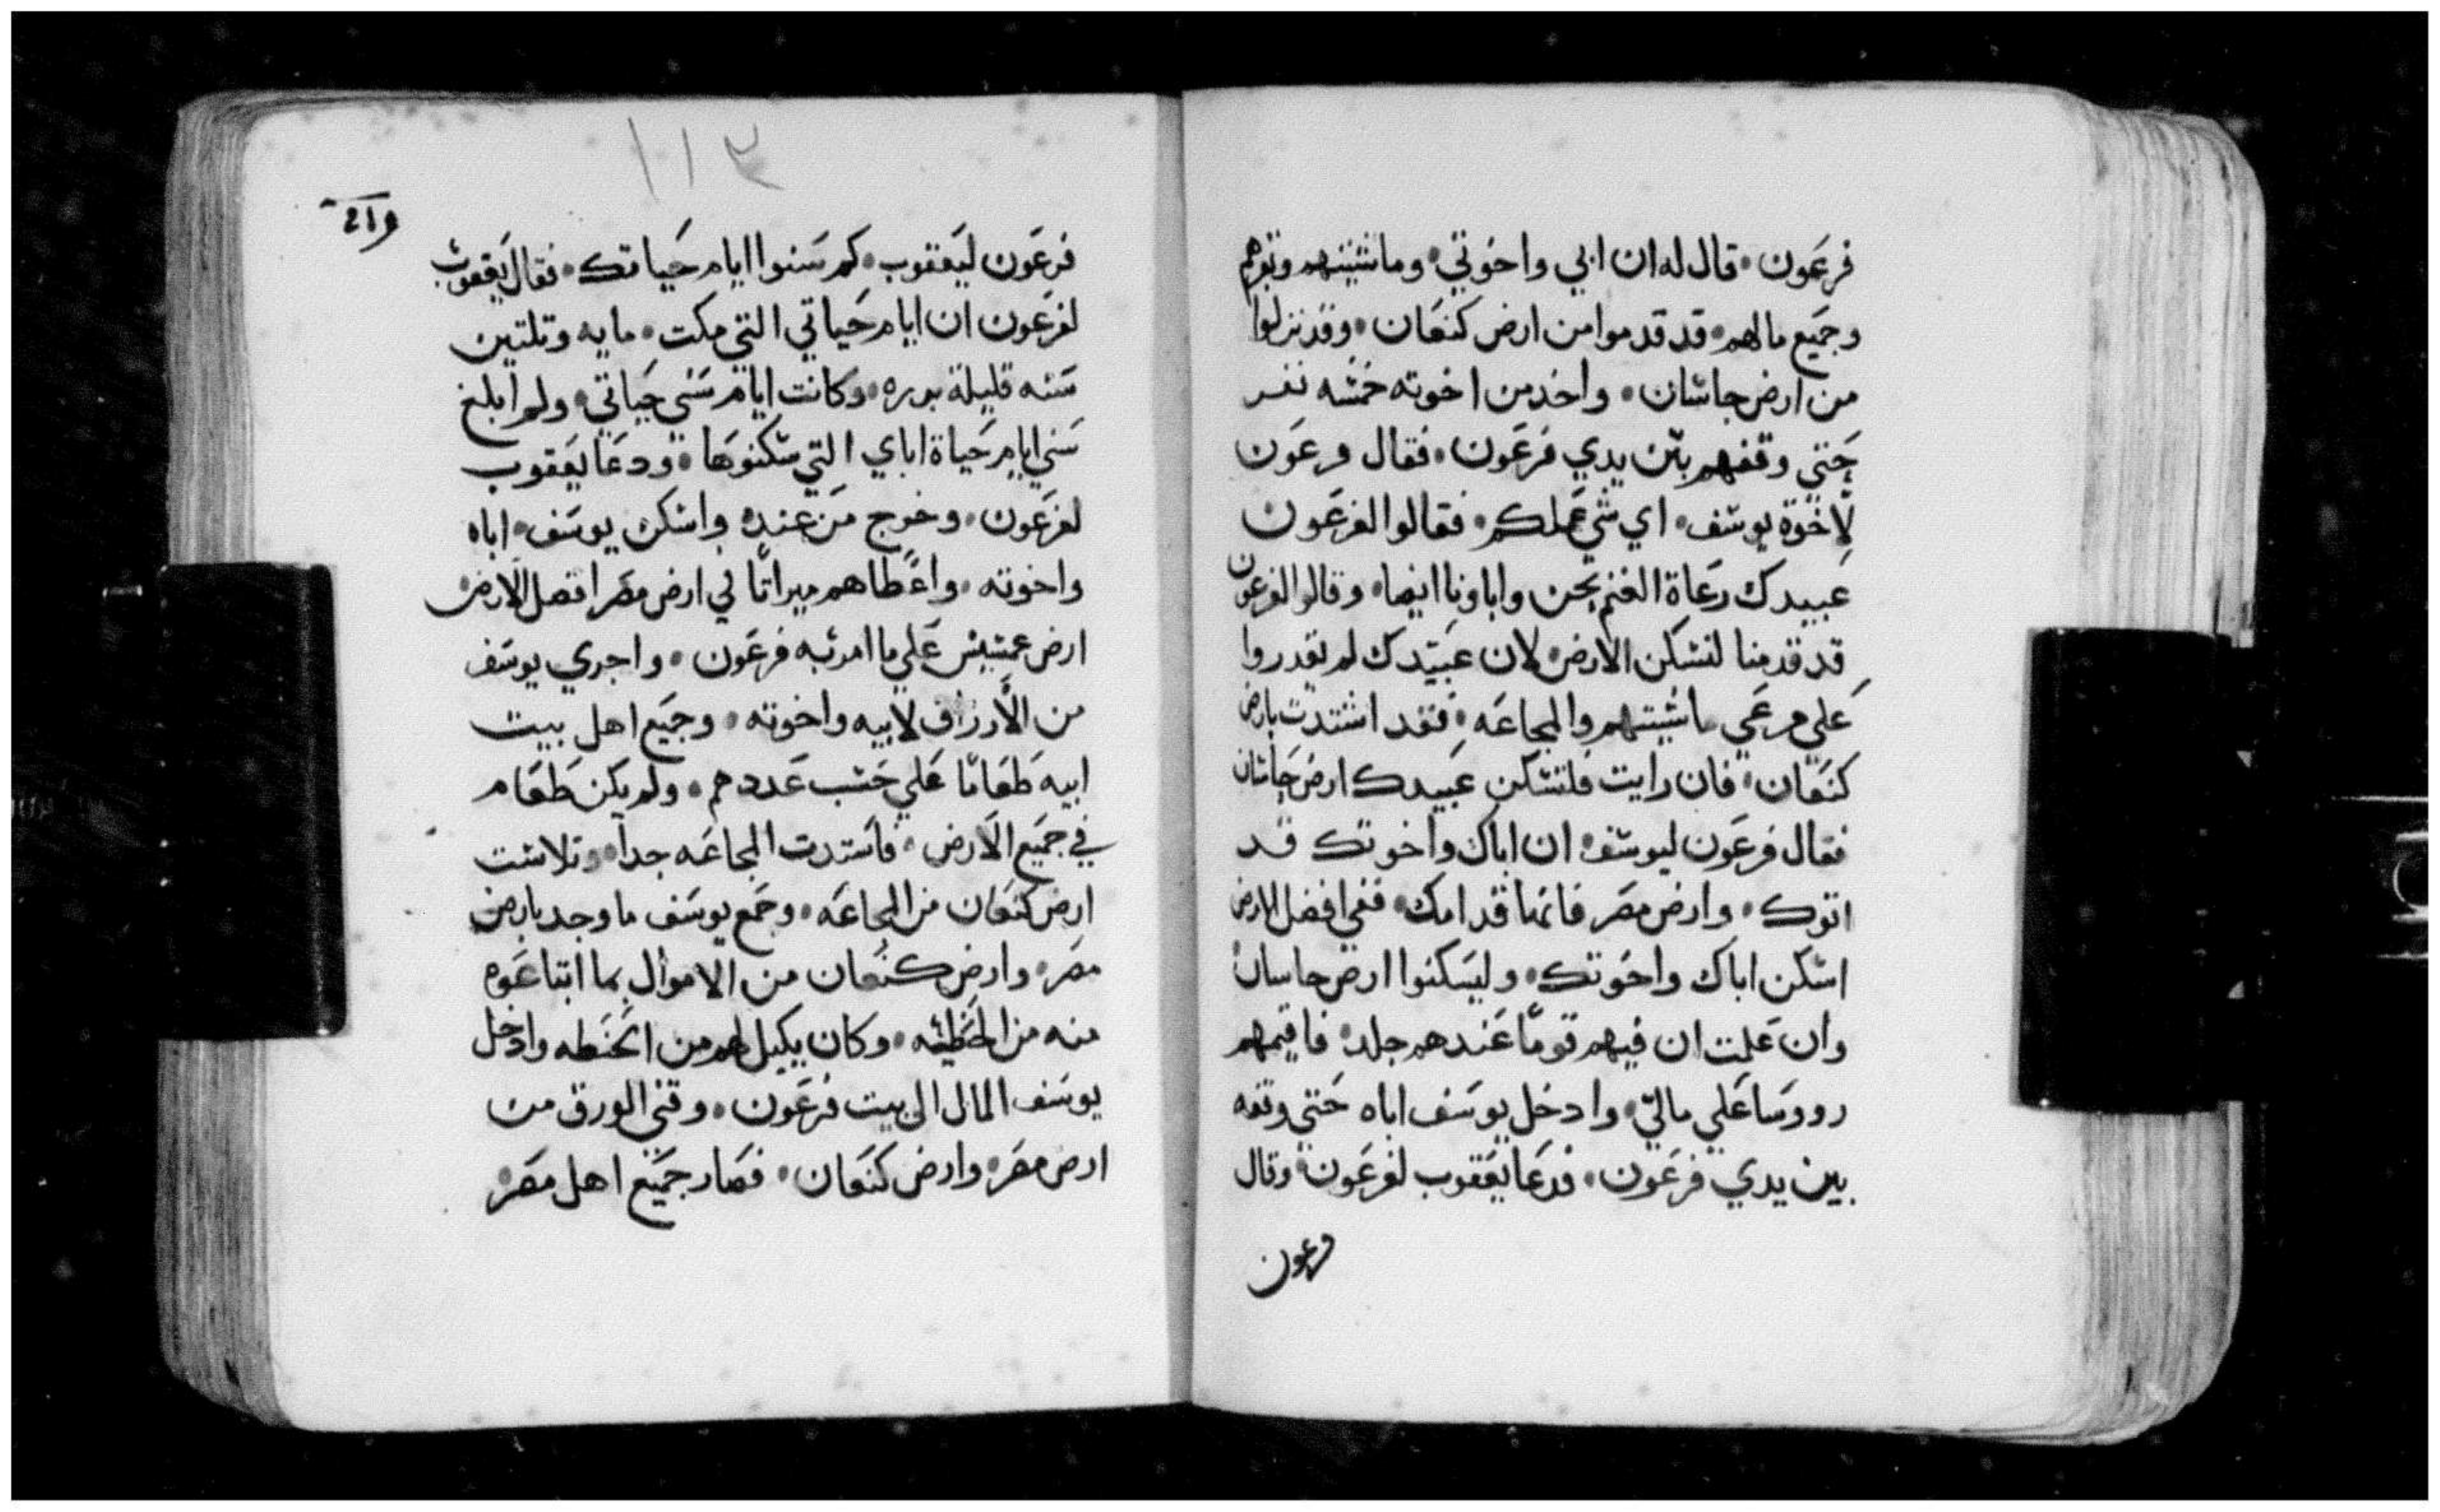 فرعون • قال له ان ابي واخوتي • وماشيتهم وبقرهم
وجميع مالهم • قد قدموا من ارض كنعان • وقد نزلوا
من ارض جاشان • واخد من اخوته خمسه نفر
حتي وقفهم بين يدي فرعون • فقال فرعون
لاخوة يوسف • اي شي عملكم • فقالوا لفرعون
عبيدك رعاة الغنم نحن واباونا ايضا • وقالوا لفرعون
قد قدمنا لنسكن الارض • لان عبيدك لم يقدروا
علي مرعي ماشيتهم والمجاعه • فقد اشتدت بارض
كنعان • فان رايت فلتسكن عبيدك ارض جاشان
فقال فرعون ليوسف • ان اباك واخوتك قد
اتوك • وارض مصر فانها قدامك • ففي افضل الارض
اسكن اباك واخوتك • وليسكنوا ارض جاسان
وان علمت ان فيهم قوما عندهم جلد • فاقيمهم
رووسا علي مالي • وادخل يوسف اباه حتي وقفه
بين يدي فرعون • فدعا يعقوب لفرعون • وقال
فرعون
١١٣
فرعون ليعقوب • كم سنوا ايام حياتك • فقال يعقوب
لفرعون ان ايام حياتي التي مكت • مايه وتلتين
سنه قليلة • وكانت ايام سني حياتي • ولم ابلغ
سني ايام حياة اباي التي سكنوها • ودعا يعقوب
لفرعون • وخرج من عنده واسكن يوسف • اباه
واخوته • واعطاهم ميراتا في ارض مصر افضل الارض
ارض علي ما امر به فرعون • واجري يوسف
من الارزاق لابيه واخوته • وجميع اهل بيت
ابيه طعاما علي حسب عددهم • ولم يكن طعام
في جميع الارض • فاستدت المجاعه جدا • وتلاشت
ارض كنعان من المجاعه • وجمع يوسف ما وجد بارض
مصر • وارض كنعان من الاموال بما ابتاعوه
منه من الحنطه • وكان يكيل لهم من الحنطه وادخل
يوسف المال الي بيت فرعون • وفني الورق من
ارض مصر • وارض كنعان • فصار جميع اهل مصر